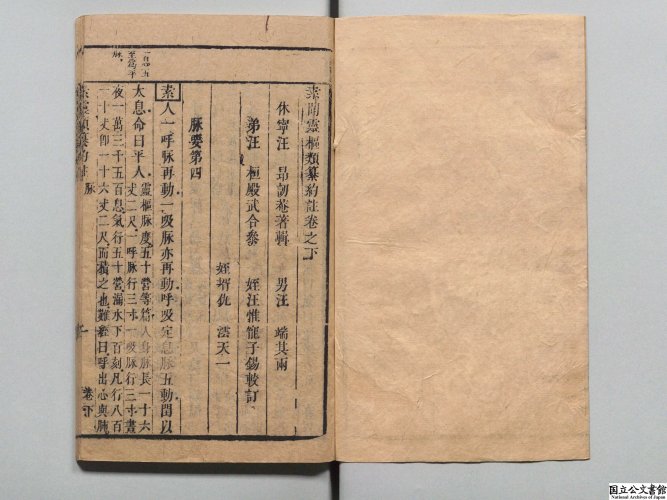 素問靈樞類纂約註卷之下
休寧汪 昂訒菴著輯 男汪 端其兩
弟汪 桓殿武合參 姪汪惟寵子錫較訂
姪壻仇 天一
脉要第四
一息五
至為平
脉
素 人一呼脉再動一吸脉亦再動呼吸定息脉五動閏以
太息命曰平人
靈樞脉度五十營等篇人身脉長一十六
丈二尺一呼脉行三寸一吸脉行三寸晝
夜一萬三千五百息氣行五十營漏水下百刻凡行八百
一十丈卽一十六丈二尺而積之也難經曰呼出心與肺
素靈類纂約註 脉 一 卷下
国立公文書館
National Archives of Japan